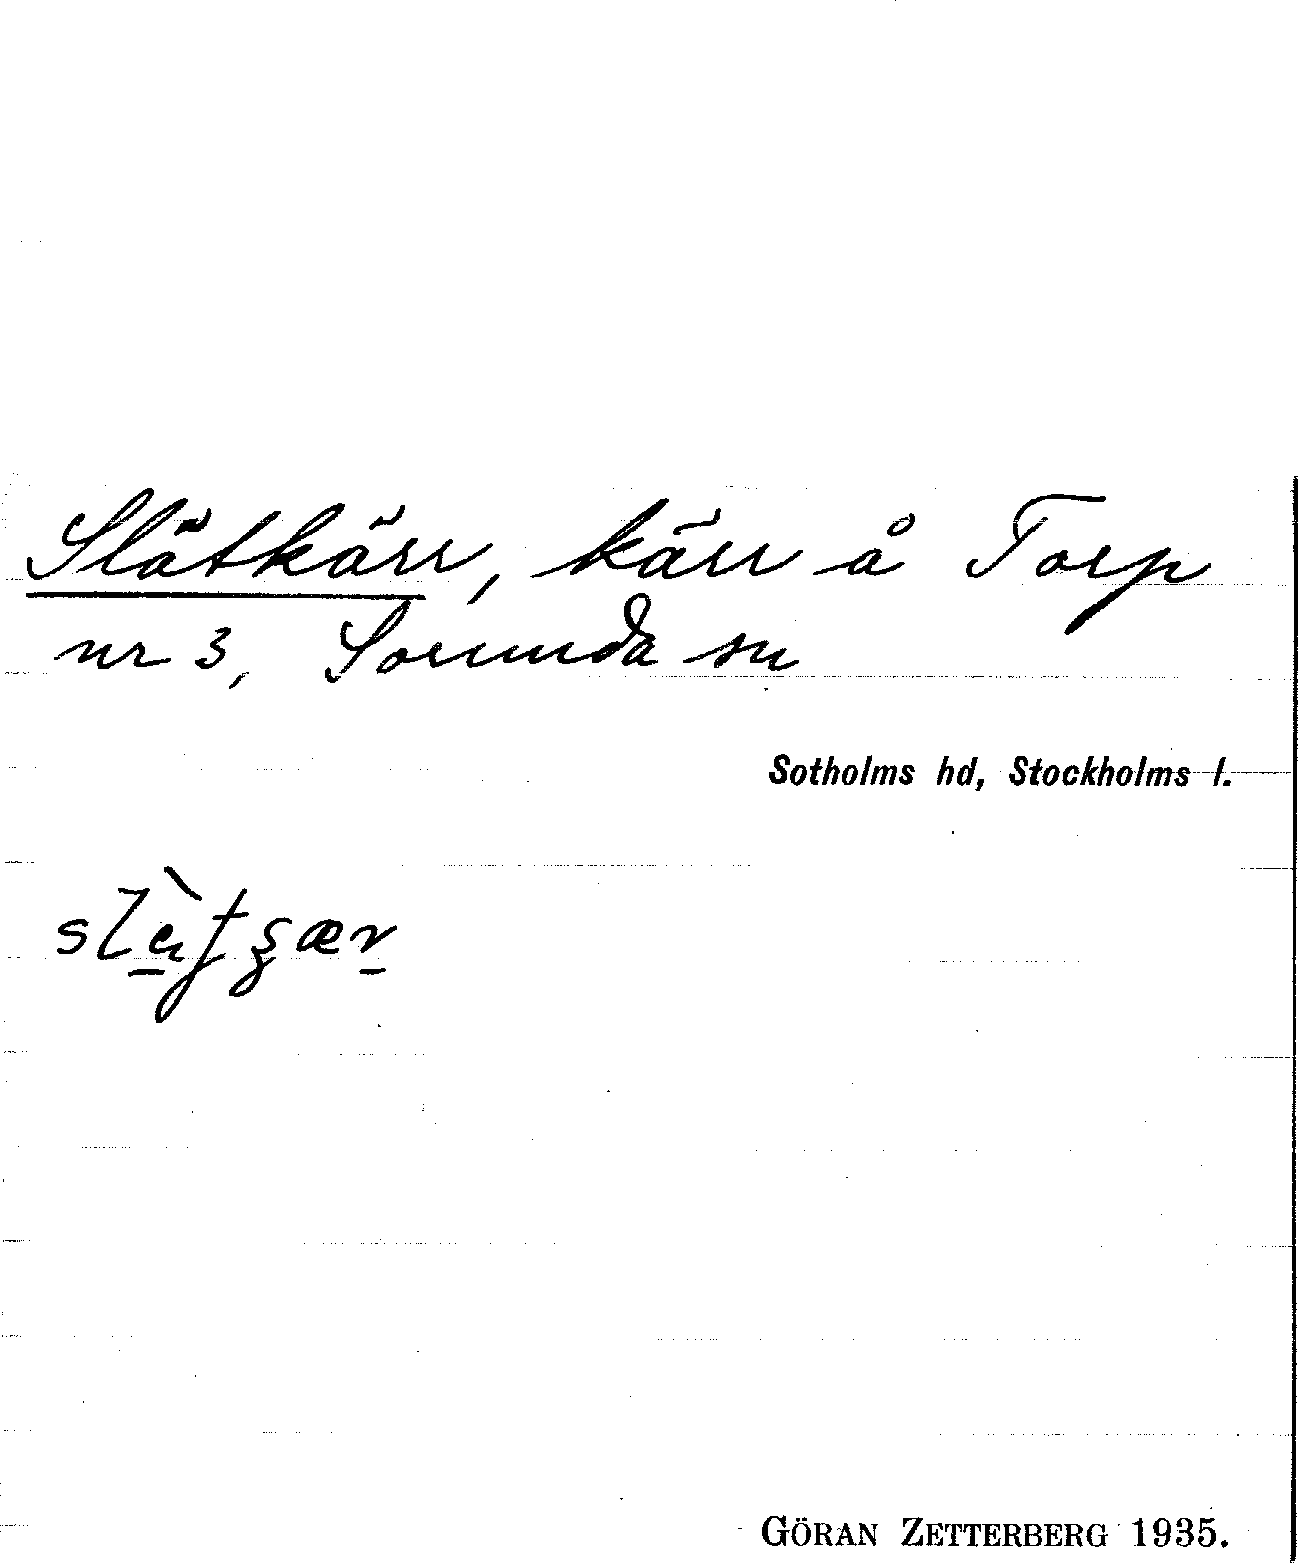 Slätkärr, kärr å Torp
nr 3, Sorunda sn
Sotholms hd, Stockholms l.
GÖRAN ZETTERBERG 1935.